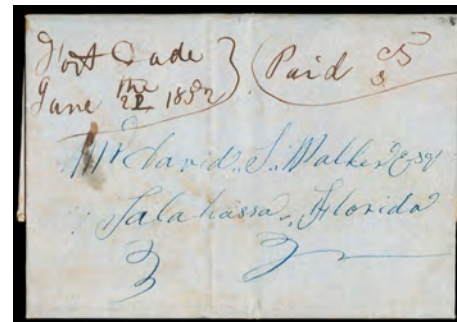 Fort Dade
June the 22 1852
Paid cts 3
Mr David. S. Walker Esqr
Talahassa, Florida